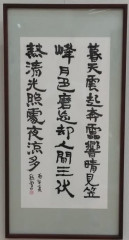 暮天震起奔雷響晴見笠
峰月色磨近却人間三伏
熱清光照處夜涼多